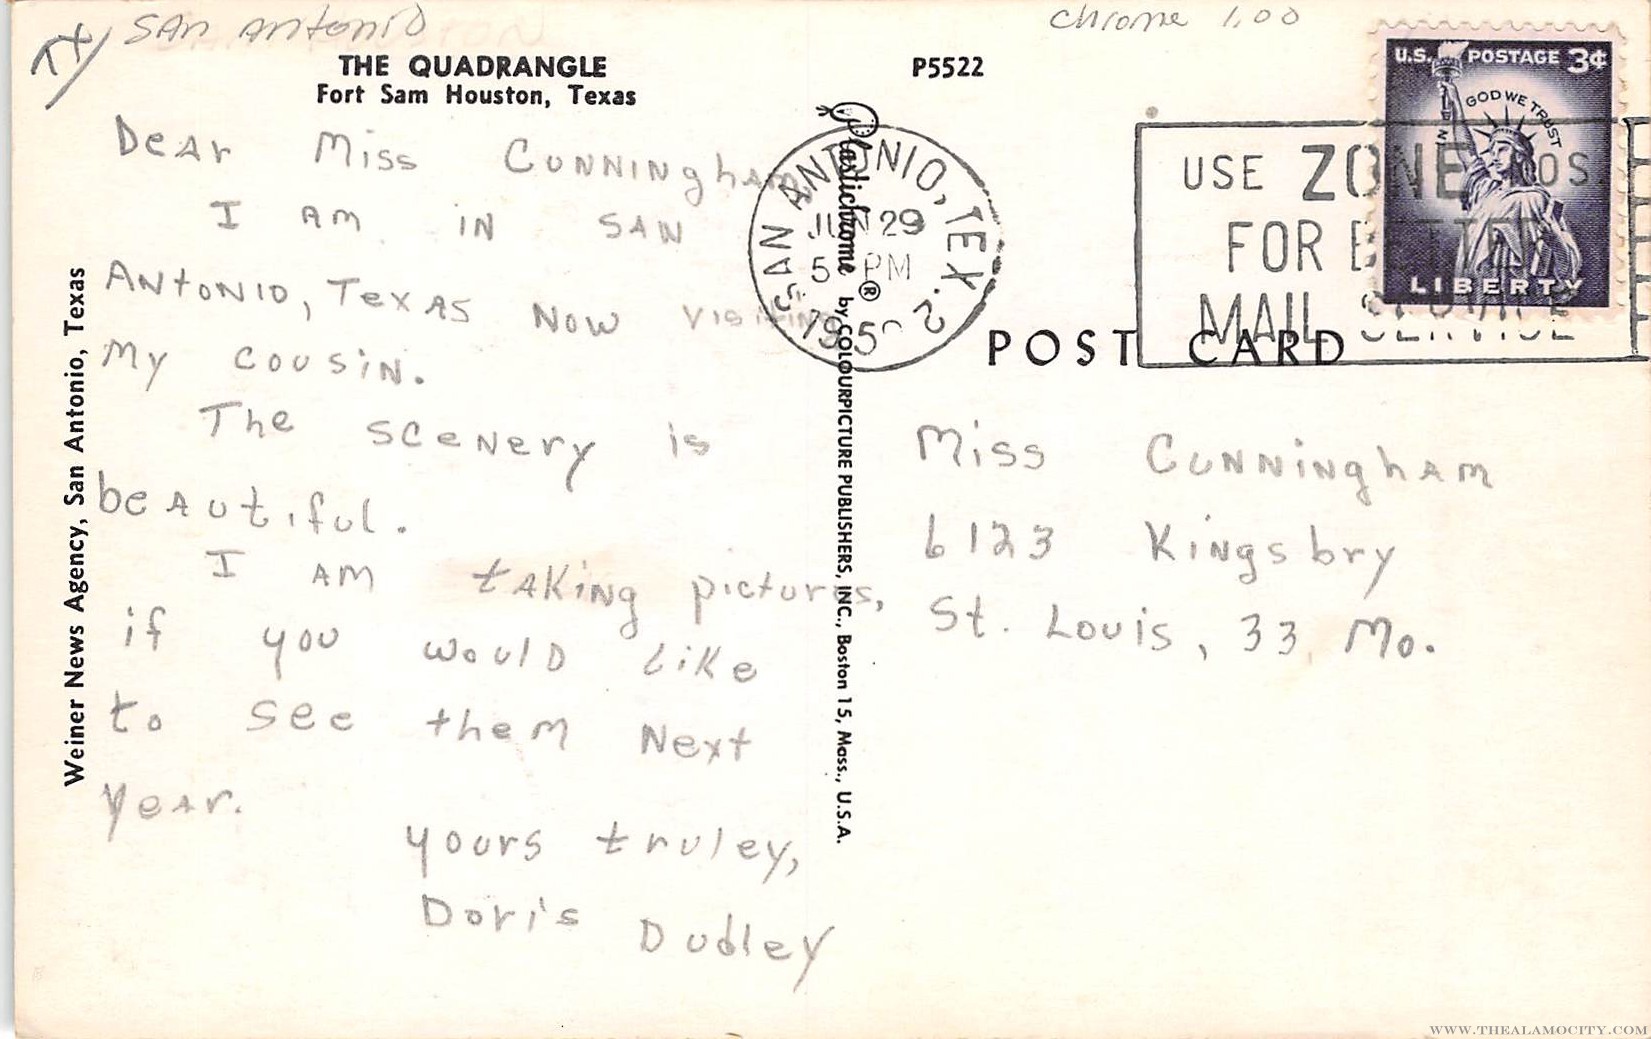 TX/ San Antonio
chrome 1.00
THE QUADRANGLE
Fort Sam Houston, Texas
P5522
U.S. POSTAGE 3¢
IN GOD WE TRUST
LIBERTY
SAN ANTONIO, TEX. 2
JUN 29
5 PM
195
USE ZONE NOS
FOR BETTER
MAIL SERVICE
POST CARD
Dear Miss Cunningham,
I am in San
Antonio, Texas now visiting
my cousin.
The scenery is
beautiful.
I am taking pictures,
if you would like
to see them next
year.
yours truley,
Doris Dudley
Miss Cunningham
6123 Kingsbry
St. Louis, 33, Mo.
Weiner News Agency, San Antonio, Texas
Plastichrome ® by COLOURPICTURE PUBLISHERS, INC., Boston 15, Mass., U.S.A.
WWW.THEALAMOCITY.COM